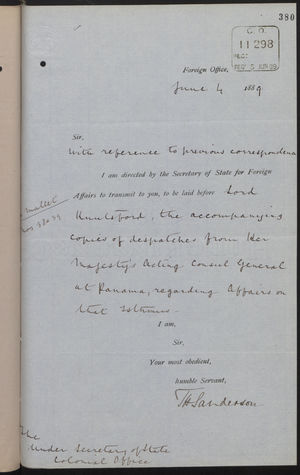 380
C. O.
11298
REC
REC 5 JUN 89
Foreign Office,
June 4 1889
Sir,
With reference to previous correspondence
I am directed by the Secretary of State for Foreign
Affairs to transmit to you, to be laid before Lord
Knutsford, the accompanying
Mallet
copies of despatches from Her
Majesty's Acting Consul General
at Panama, regarding Affairs on
that Isthmus.
I am,
Sir,
Your most obedient,
humble Servant,
TH Sanderson
The
Under Secretary of State
Colonial Office